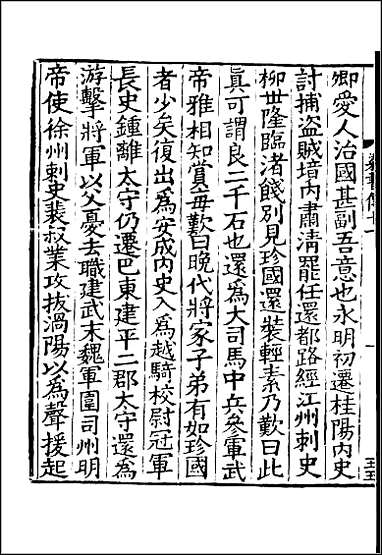 卿愛人治國甚副吾意也永明初遷桂陽內史
討捕盜賊境內肅清罷任還都路經江州刺史
柳世隆臨渚餞別見珍國還裝輕素乃歎曰此
眞可謂良二千石也還爲大司馬中兵參軍武
帝雅相知賞每歎曰晚代將家子弟有如珍國
者少矣復出爲安成內史入爲越騎校尉冠軍
長史鍾離太守仍遷巴東建平二郡太守還爲
游擊將軍以父憂去職建武末魏軍圍司州明
帝使徐州刺史裴叔業攻拔渦陽以爲聲援起